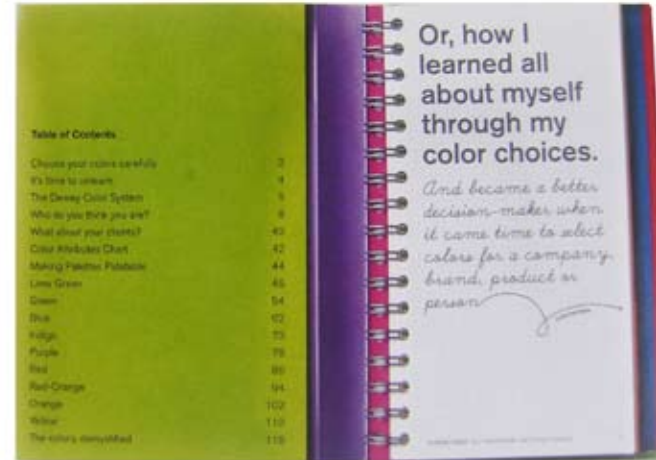 Table of Contents
Choose your colors carefully 2
It's time to unlearn 4
The Dewey Color System 5
Who do you think you are? 8
What about your clients? 40
Color Attributes Chart 42
Making Palettes Palatable 44
Lime Green 46
Green 54
Blue 62
Indigo 70
Purple 78
Red 86
Red-Orange 94
Orange 102
Yellow 110
The colors demystified 118
Or, how I
learned all
about myself
through my
color choices.
And became a better
decision-maker when
it came time to select
colors for a company,
brand, product or
person